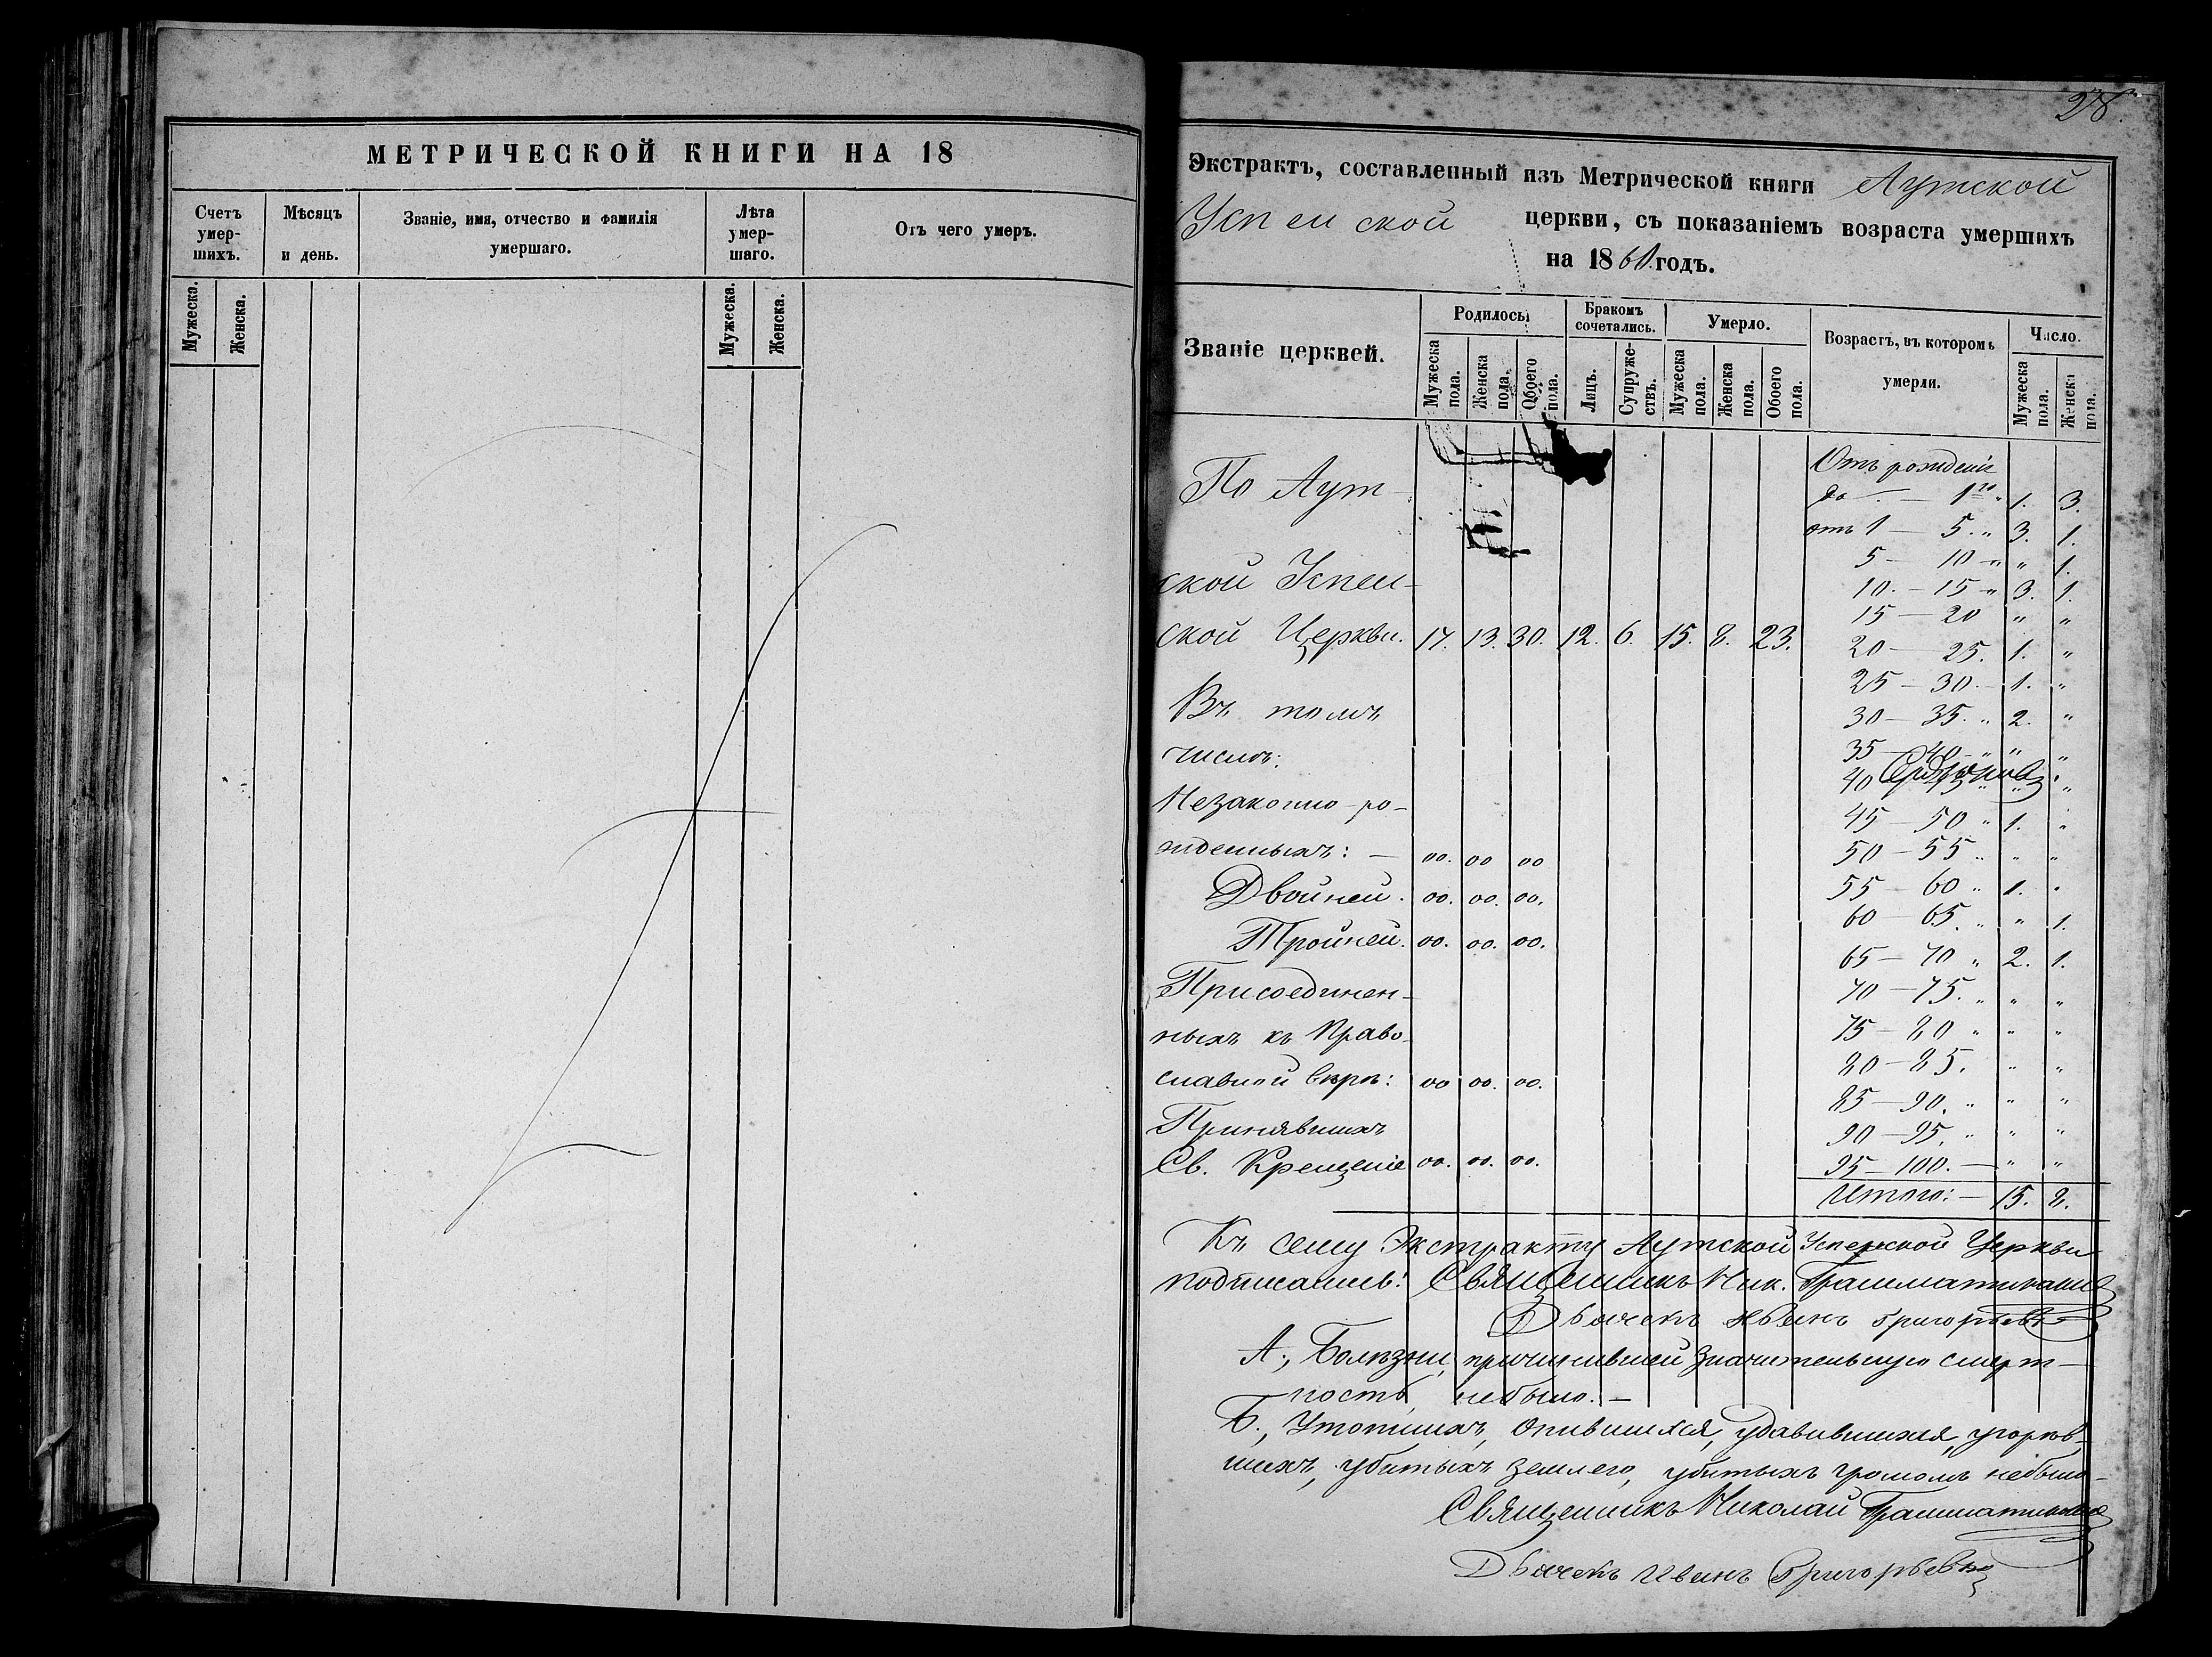 МЕТРИЧЕСКОЙ КНИГИ НА 18
Счетъ умер-шихъ.
Мѣсяцъ и день.
Званіе, имя, отчество и фамилія умершаго.
Лѣта умер-шаго.
Отъ чего умеръ.
Мужеска. Женска. Мужеска. Женска.
28.
Экстрактъ, составленный изъ Метрической книги Аутской
Успенской церкви, съ показаніемъ возраста умершихъ
на 1860 годъ.
Званіе церквей.
Родилось
Мужеска пола. Женска пола. Обоего пола.
Бракомъ сочетались.
Лицъ. Супруже-ствъ.
Умерло.
Мужеска пола. Женска пола. Обоего пола.
Возрастъ, въ которомъ умерли.
Число.
Мужеска пола. Женска пола.
По Аут-
ской Успен-
ской Церкви. 17. 13. 30. 12. 6. 15. 8. 23.
Въ томъ
числѣ:
Незаконно-ро-
жденныхъ: — 00. 00 00
Двойней. 00. 00. 00.
Тройней. 00. 00. 00.
Присоединен-
ныхъ къ Право-
славной вѣрѣ: 00 00. 00.
Принявшихъ
Св. Крещеніе 00. 00. 00.
Отъ рожденія
до — 1го 1. 3.
отъ 1 — 5. „ 3. 1.
5 — 10 — „ „ 1.
10. — 15 — „ 3. 1.
15 — 20 „ „
20 — 25. 1. „
25 — 30. — 1. „
30 — 35. „ 2. „
35 — 40 — „ „ „
40
45 — 50 „ 1. „
50 — 55 „ „ „
55 — 60 „ 1. „
60 — 65. „ „ 1.
65 — 70 „ 2. 1.
70 — 75. „ „ „
75 — 80 „ „ „
80 — 85. „ „
85 — 90. „ „ „
90 — 95. „ „ „
95 — 100. — „ „
Итого: — 15. 8.
Къ сему Экстракту Аутской Успенской Церкви
подписались: Священникъ Ник.
Дьячекъ Иванъ Григорьевъ
А., Болѣзни, причинившей значительную смерт-
ность, небыло. —
Б., Утопшихъ, опившихся, удавившихся, угорѣв-
шихъ, убитыхъ землею, убитыхъ громомъ небыло —
Священникъ Николай
Дьячекъ Иванъ Григорьевъ